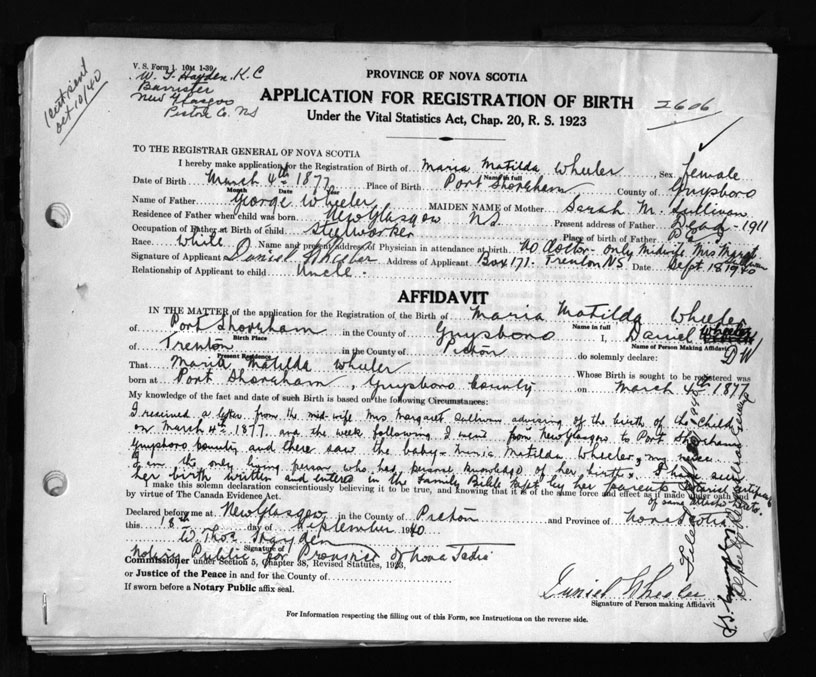 1 cert sent
Oct 10/40
V. S. Form 1. 10M 1-39
W. T. Hayden. K. C
Barrister
New Glasgow
Pictou Co. NS
PROVINCE OF NOVA SCOTIA
APPLICATION FOR REGISTRATION OF BIRTH
2606
Under the Vital Statistics Act, Chap. 20, R. S. 1923
TO THE REGISTRAR GENERAL OF NOVA SCOTIA
I hereby make application for the Registration of Birth of Maria Matilda Wheeler Sex Female
Name in full
Date of Birth March 4th 1877 Place of Birth Port Shoreham County of Guysboro
Month Date Year
Name of Father George Wheeler MAIDEN NAME of Mother Sarah M. Sullivan
Residence of Father when child was born New Glasgow NS Present address of Father Dead - 1911
Occupation of Father at Birth of child Steelworker Place of birth of Father
Race White Name and present address of Physician in attendance at birth No doctor - only Midwife Mrs Margt Sullivan
Signature of Applicant Daniel Wheeler Address of Applicant Box 171 - Trenton NS. Date Sept 18 1940
Relationship of Applicant to child Uncle.
AFFIDAVIT
IN THE MATTER of the application for the Registration of the Birth of Maria Matilda Wheeler
Name in full
of Port Shoreham in the County of Guysboro I, Daniel Wheeler
Birth Place Name of Person Making Affidavit
DW
of Trenton in the County of Pictou do solemnly declare:
Present Residence
That Maria Matilda Wheeler Whose Birth is sought to be registered was
born at Port Shoreham, Guysboro County on March 4th 1877
My knowledge of the fact and date of such Birth is based on the following Circumstances:
I received a letter from the mid-wife Mrs. Margaret Sullivan advising of the birth of the child
on March 4th 1877 and the week following I went from New Glasgow to Port Shoreham
Guysboro County and there saw the baby - Maria Matilda Wheeler, my niece.
I am the only living person who had personal knowledge of her birth. I have seen
her birth written and entered in the Family Bible kept by her parents. Notarial certificate
of same attached hereto.
I make this solemn declaration conscientiously believing it to be true, and knowing that it is of the same force and effect as if made under oath and
by virtue of The Canada Evidence Act.
Declared before me at New Glasgow in the County of Pictou and Province of Nova Scotia
this 18th day of September 1940
W Thos Hayden
Signature of
Notary Public for Province of Nova Scotia
Commissioner under Section 5, Chapter 38, Revised Statutes, 1923,
or Justice of the Peace in and for the County of
If sworn before a Notary Public affix seal.
Daniel Wheeler
Signature of Person making Affidavit
For Information respecting the filling out of this Form, see Instructions on the reverse side.
Deputy Registrar General